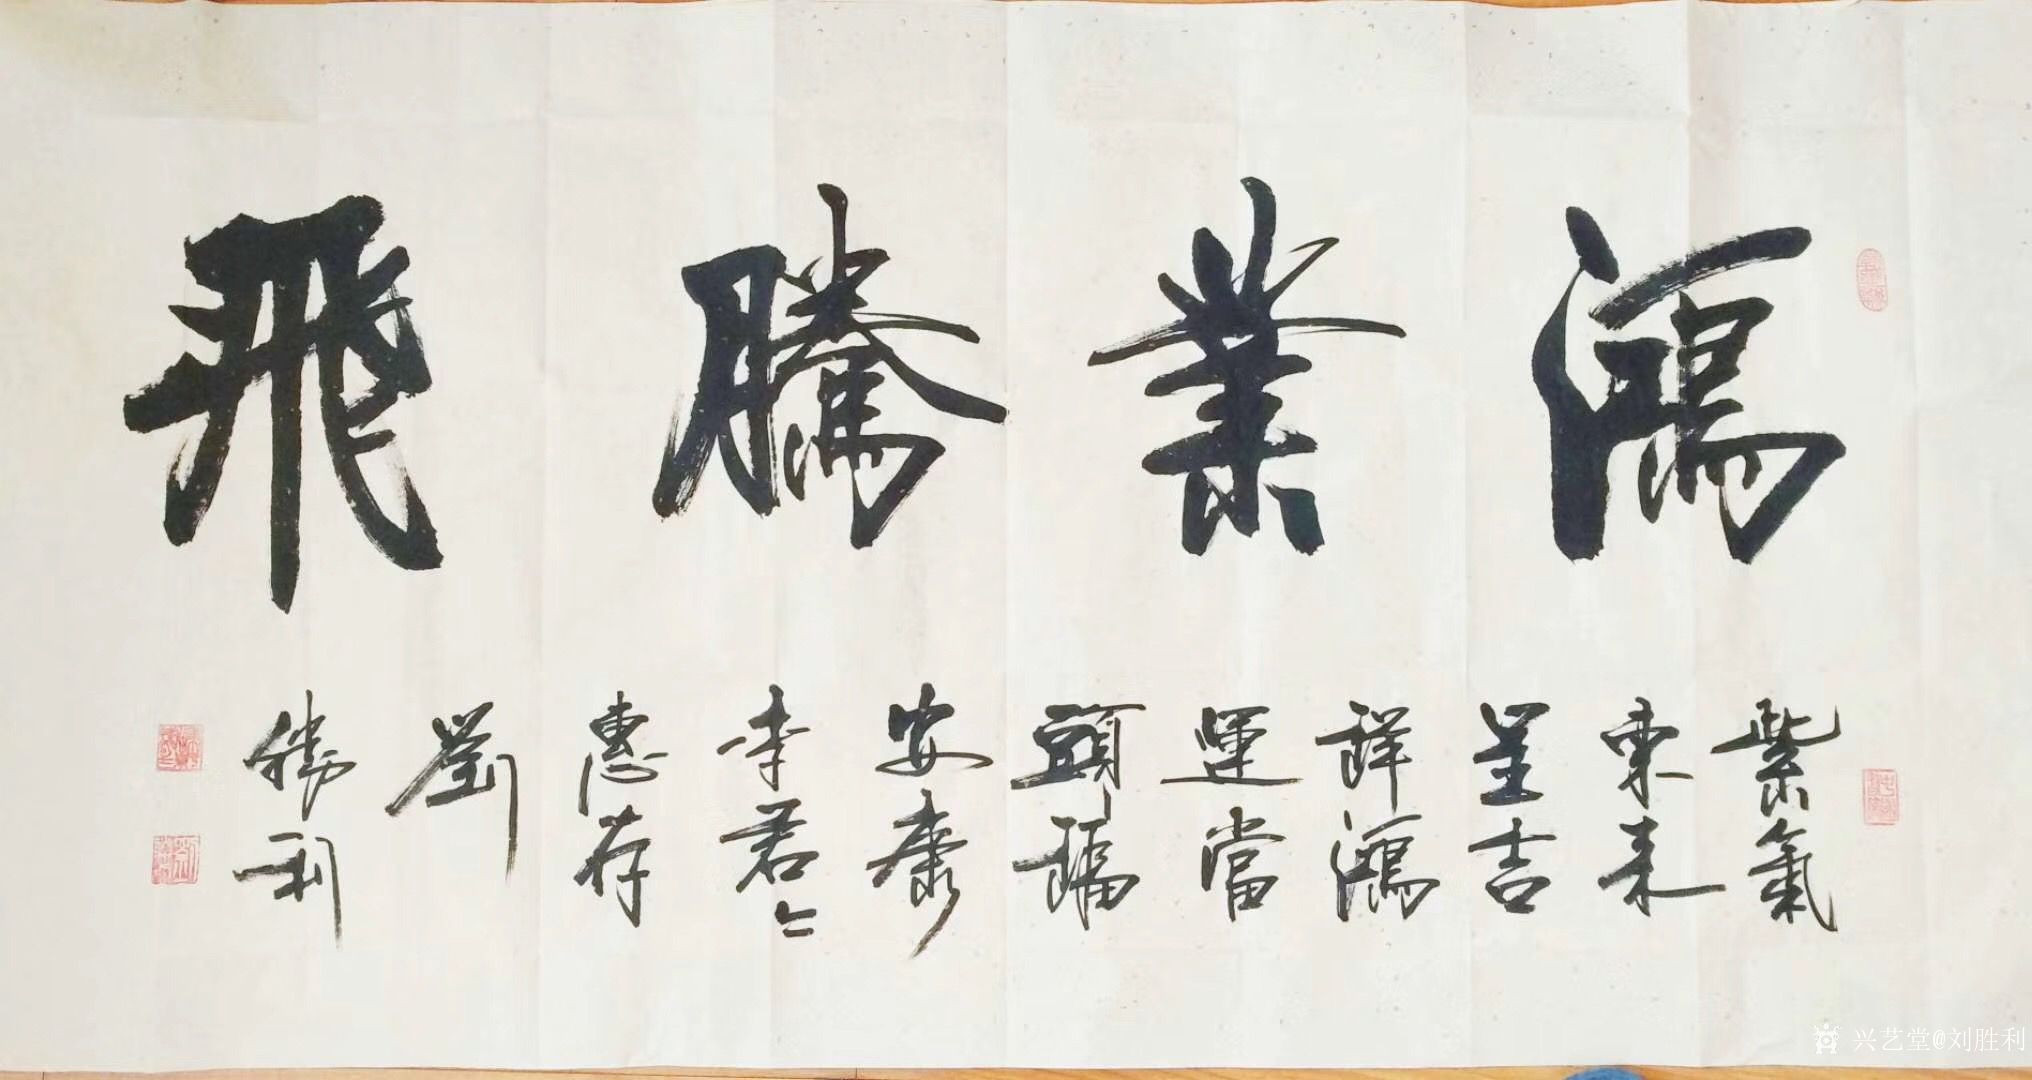 鴻業騰飛
紫氣
東来
呈吉
祥鴻
運當
頭福
安康
李君
惠存
劉
勝利
兴艺堂@刘胜利